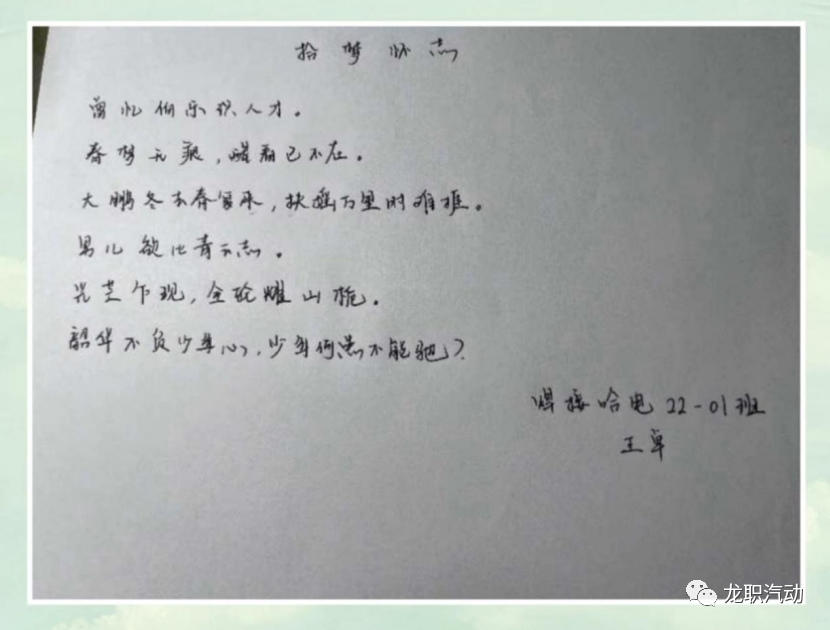 拾梦怀志
曾忆伯乐识人才。
春梦无痕,醒看已不在。
大鹏冬去春复来,扶摇万里时难推。
男儿欲比青云志。
光芒乍现,金轮耀山
韶华不负少年心,少年何愁不能驰?
焊接哈电22-01班
王卓
龙职汽动